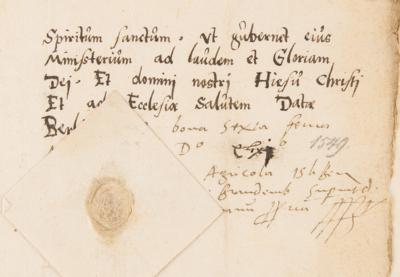 Spiritum sanctum. Ut gubernet eius
Ministerium ad laudem et Gloriam
Dei. Et domini nostri Hiesu Christi
Et ad Ecclesiæ Salutem Datæ
Berl bona sexta feria
D° 1549
Agricola Isleben